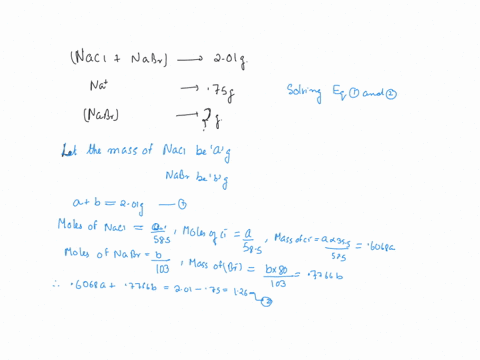 (NaCl + NaBr) → 2.01g
Na⁺ → .75g
(NaBr) → ? g
Solving Eq ① and ②
Let the mass of NaCl be 'a' g
NaBr be 'b' g
a + b = 2.01g — ①
Moles of NaCl = a/58.5, Moles of Cl = a/58.5, Mass of Cl = a×35.5/58.5 = .6068a
Moles of NaBr = b/103, Mass of (Br) = b×80/103 = .7766b
∴ .6068a + .7766b = 2.01 - .75 = 1.26 — ②